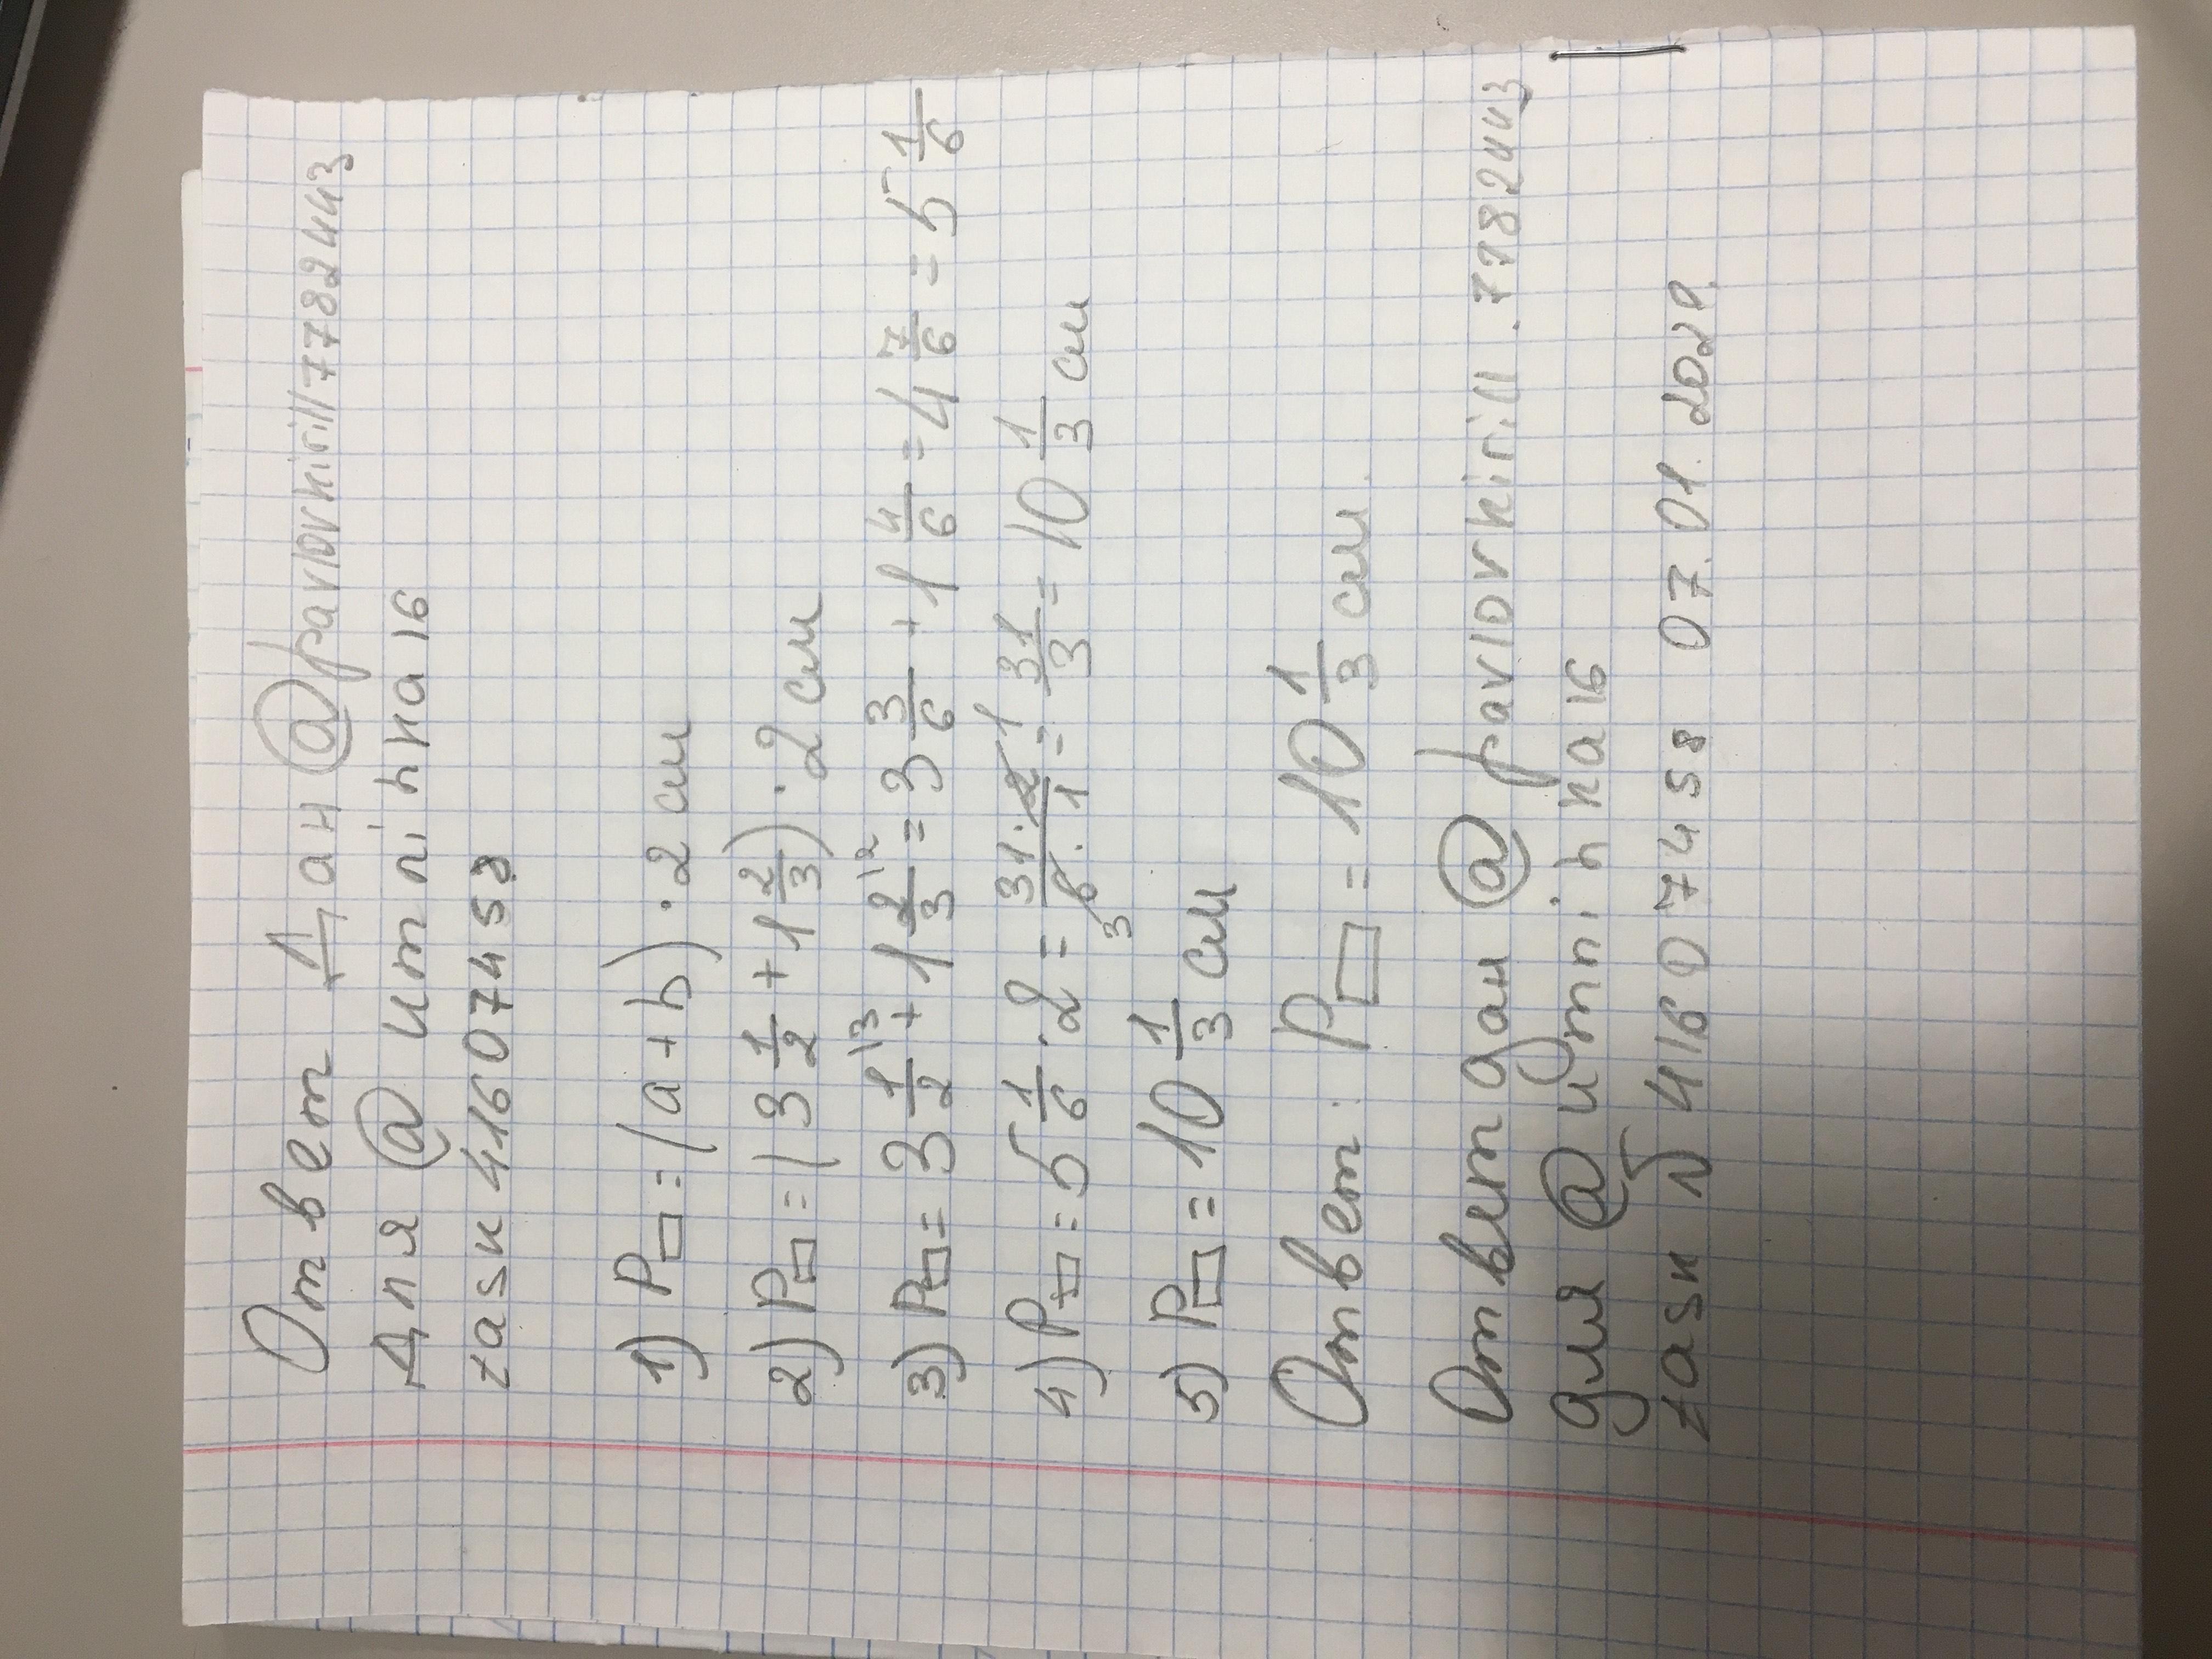 Ответ Дан @pavlovkirill77782443
Для @ итпіhка16
task 41607458
1) P▭ = (a + b) · 2 см
2) P▭ = (3 1/2 + 1 2/3) · 2 см
3) P▭ = 3 1/2 \3 + 1 2/3 \2 = 3 3/6 + 1 4/6 = 4 7/6 = 5 1/6
4) P▭ = 5 1/6 · 2 = 31·2/6·1 = 31/3 = 10 1/3 см
5) P▭ = 10 1/3 см
Ответ: P▭ = 10 1/3 см.
Ответ дан @pavlovkirill.7782443
для @ итпіhка16
task № 41607458 07.01.2021.